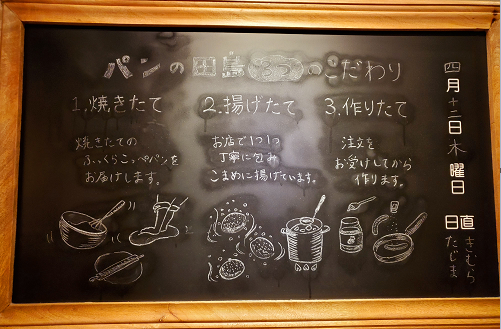 パンの田島 3つのこだわり
1.焼きたて
焼きたての
ふっくらコッペパンを
お届けします。
2.揚げたて
お店で1つ1つ
丁寧に包み
こまめに揚げています。
3.作りたて
注文を
お受けしてから
作ります。
四月十二日木曜日
日直
きむら
たじま